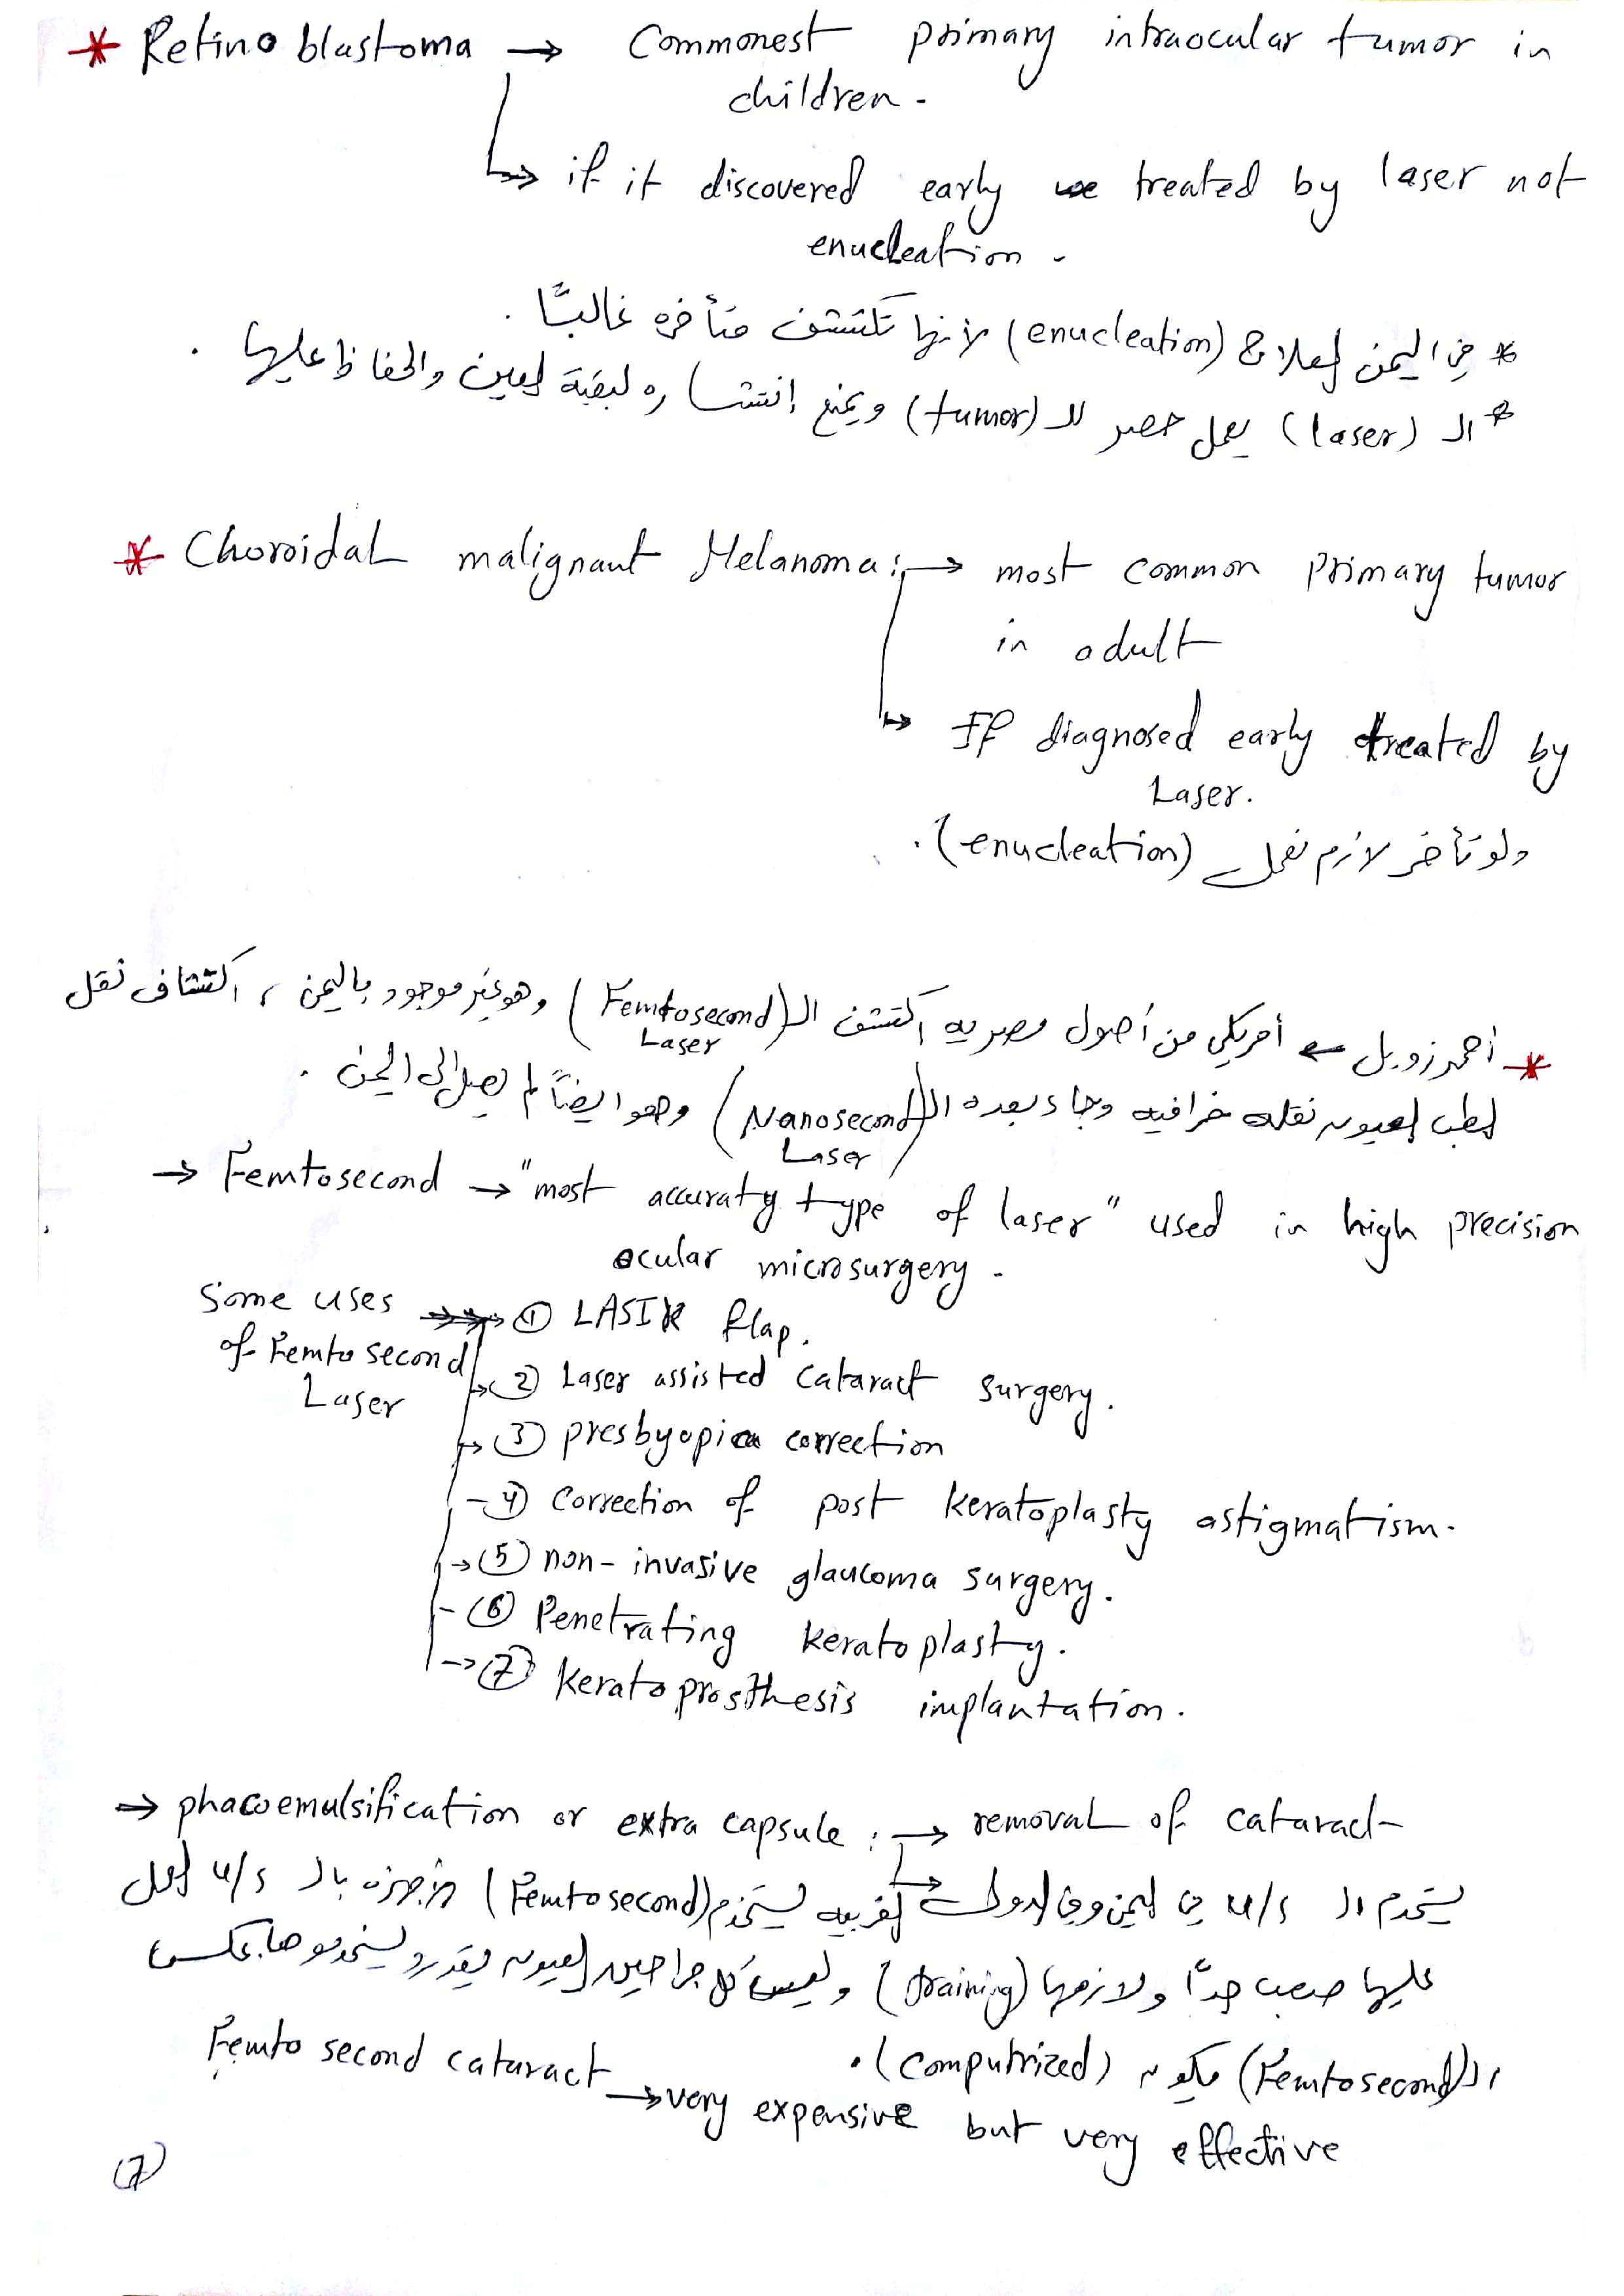 * Retinoblastoma → Commonest primary intraocular tumor in
children.
↳ if it discovered early we treated by laser not
enucleation.
* في اليمن العلاج (enucleation) لأنها تكتشف متأخره غالبًا.
* الـ (laser) يعمل حصر للـ (tumor) ويمنع إنتشاره لبقية العين والحفاظ عليها.
* Choroidal malignant Melanoma: → most common primary tumor
in adult
↳ If diagnosed early treated by
Laser.
ولو تأخر لازم نعمل (enucleation).
* أحمد زويل ← أمريكي من أصول مصريه اكتشف الـ (Femtosecond Laser) وهو غير موجود باليمن، اكتشاف نقل
لطب العيون نقله خرافيه وجاء بعده الـ (Nanosecond Laser) وهو ايضًا لم يصل إلى اليمن.
→ Femtosecond → "most accuraty type of laser" used in high precision
ocular microsurgery.
Some uses of Femtosecond Laser → ① LASIK flap.
→ ② Laser assisted cataract surgery.
→ ③ presbyopia correction
- ④ Correction of post keratoplasty astigmatism.
→ ⑤ non-invasive glaucoma surgery.
- ⑥ Penetrating keratoplasty.
→ ⑦ Keratoprosthesis implantation.
→ phacoemulsification or extra capsule: → removal of cataract
↳ يستخدم الـ u/s في اليمن وفي الدول الغربيه يستخدم (Femtosecond) الأجهزه بالـ u/s العمل
عليها صعب جدًا ولازمها (training) وليس كل جراحين العيون يقدرو يستخدموها بعكس
الـ (Femtosecond) فيكون (computrized).
Femto second cataract → very expensive but very effective
(7)